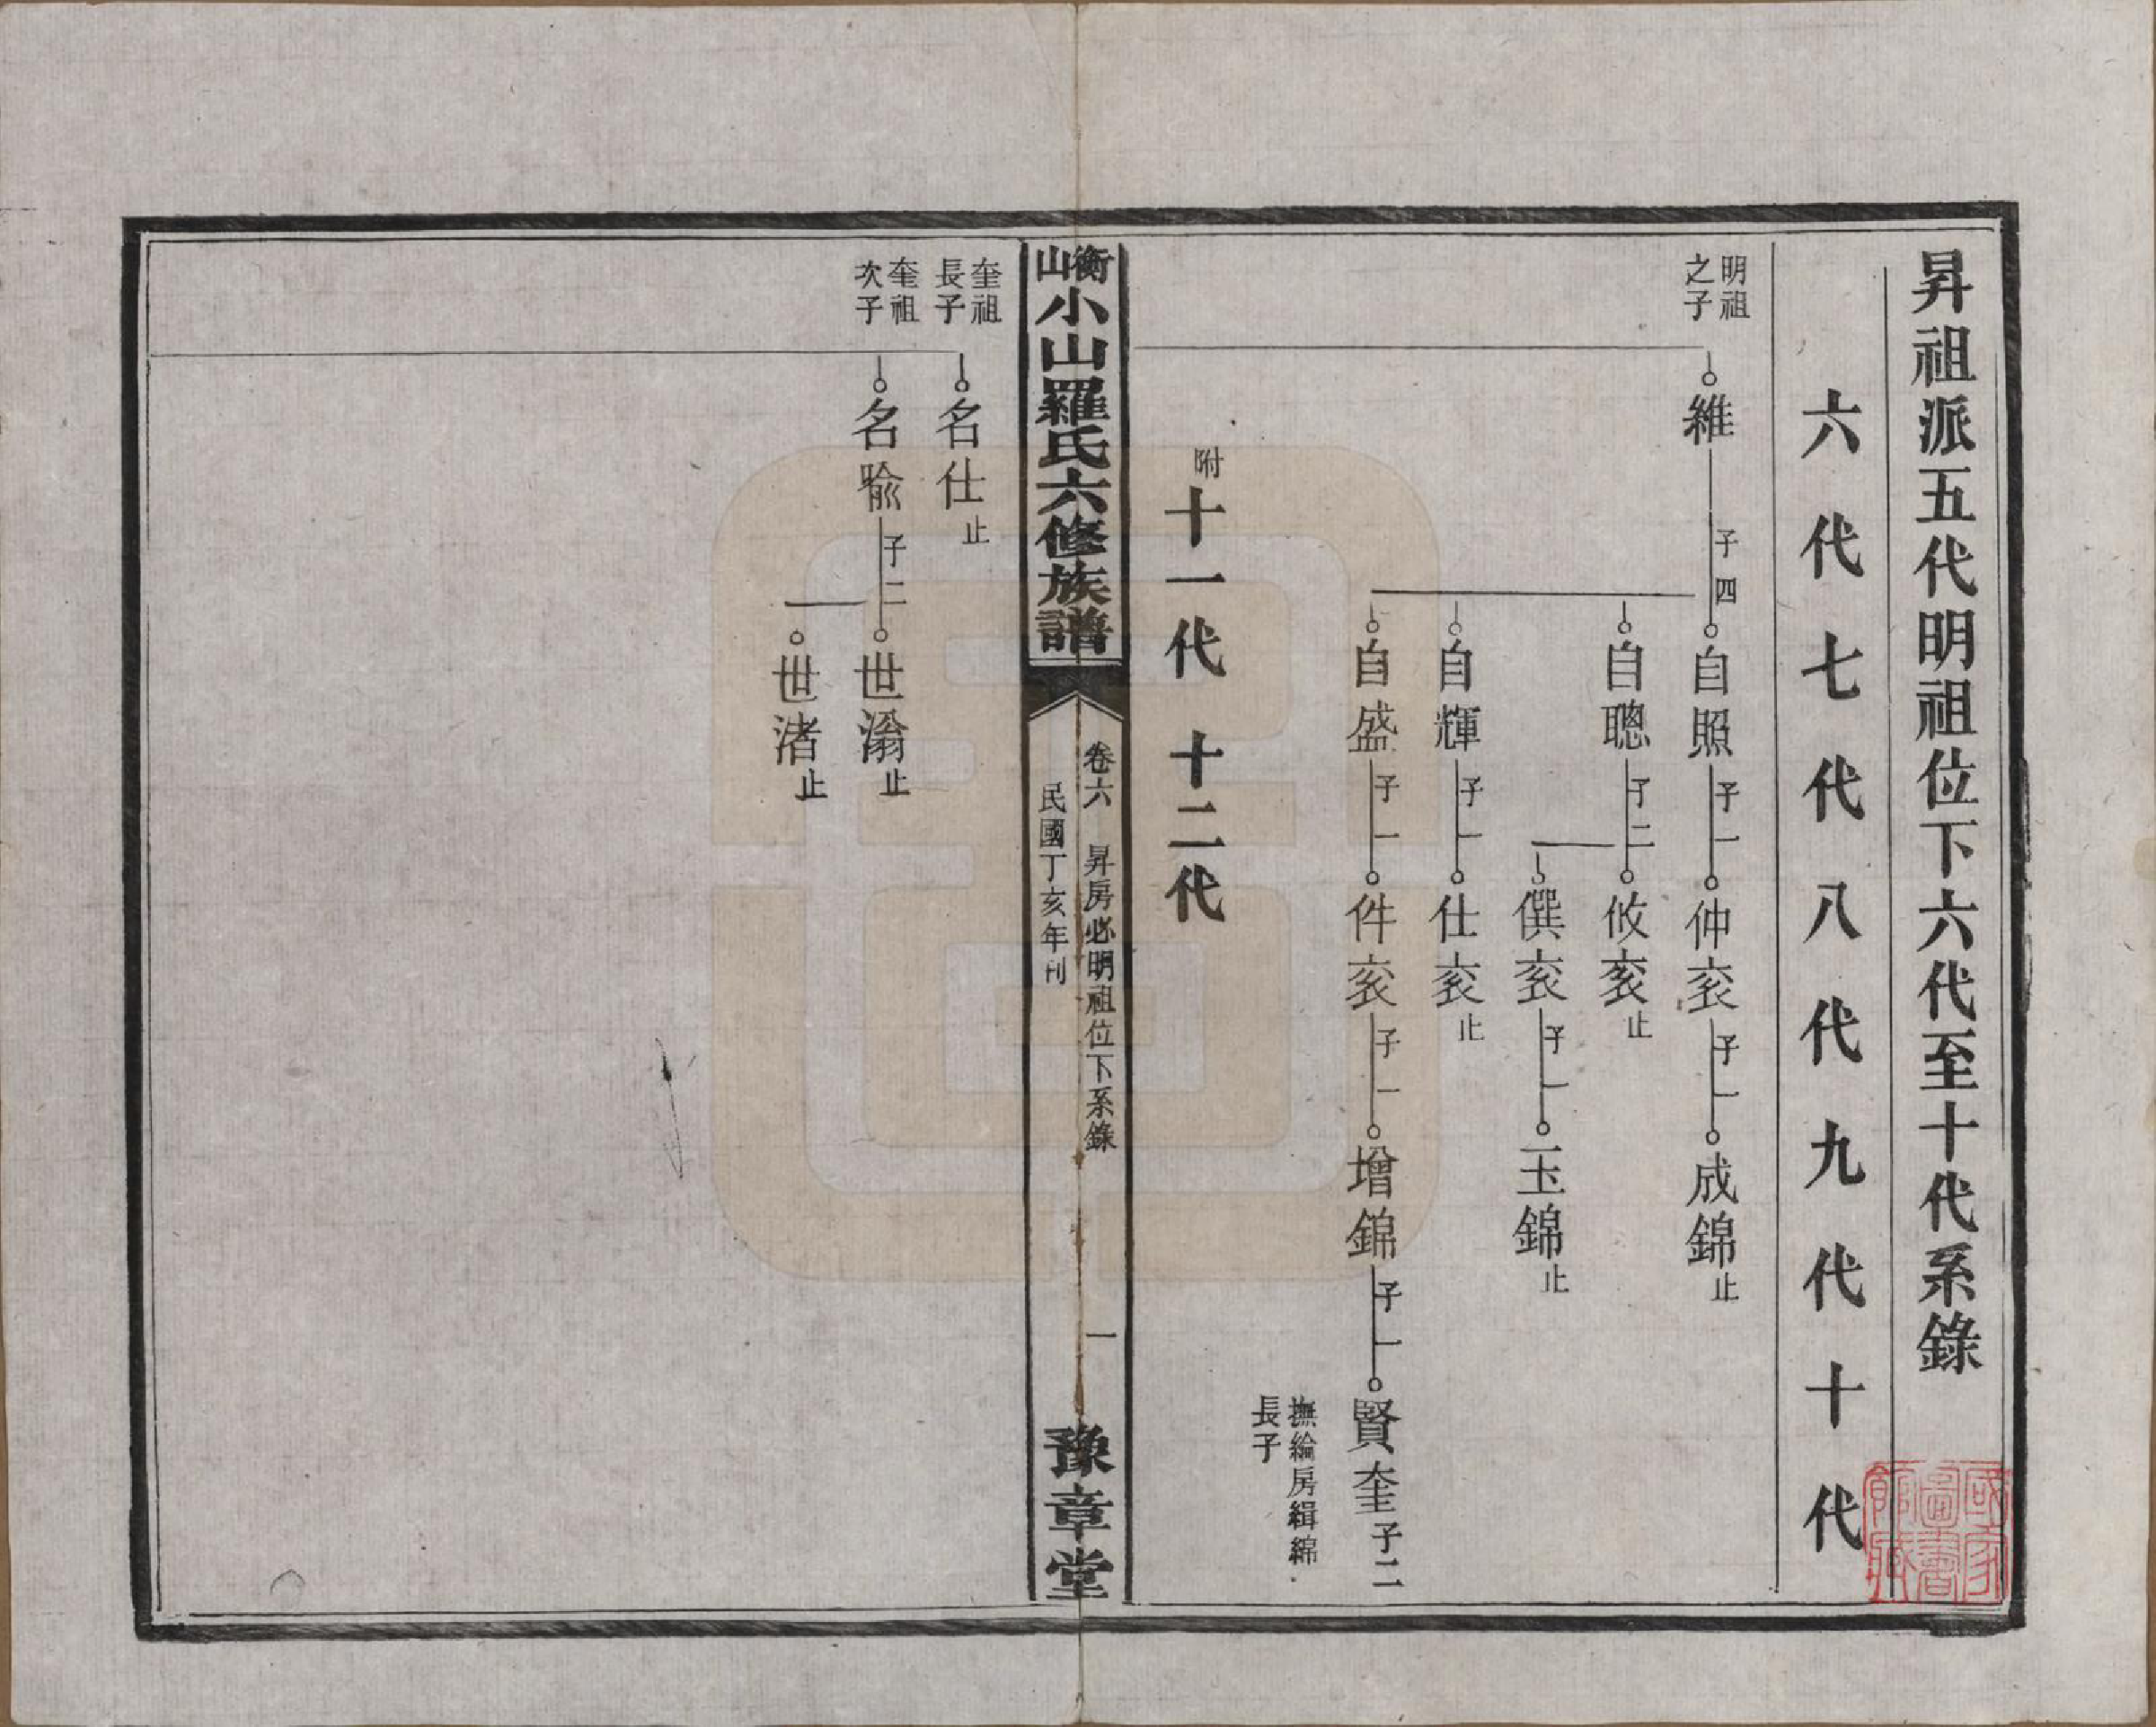 昇祖派五代明祖位下六代至十代系錄
六代七代八代九代十代
明祖之子
維 子四
自照 子一 仲袤 子一 成錦 止
自聰 子二 攸袤 止
僎袤 子一 玉錦 止
自輝 子一 仕袤 止
自盛 子一 件袤 子一 增錦 子一 賢奎 子二
撫綸房緝綿長子
附十一代 十二代
衡山小山羅氏六修族譜
卷六 昇房必明祖位下系錄 一
民國丁亥年刊
豫章堂
奎祖長子
名仕 止
奎祖次子
名喩 子二
世滃 止
世渚 止
國家圖書館藏